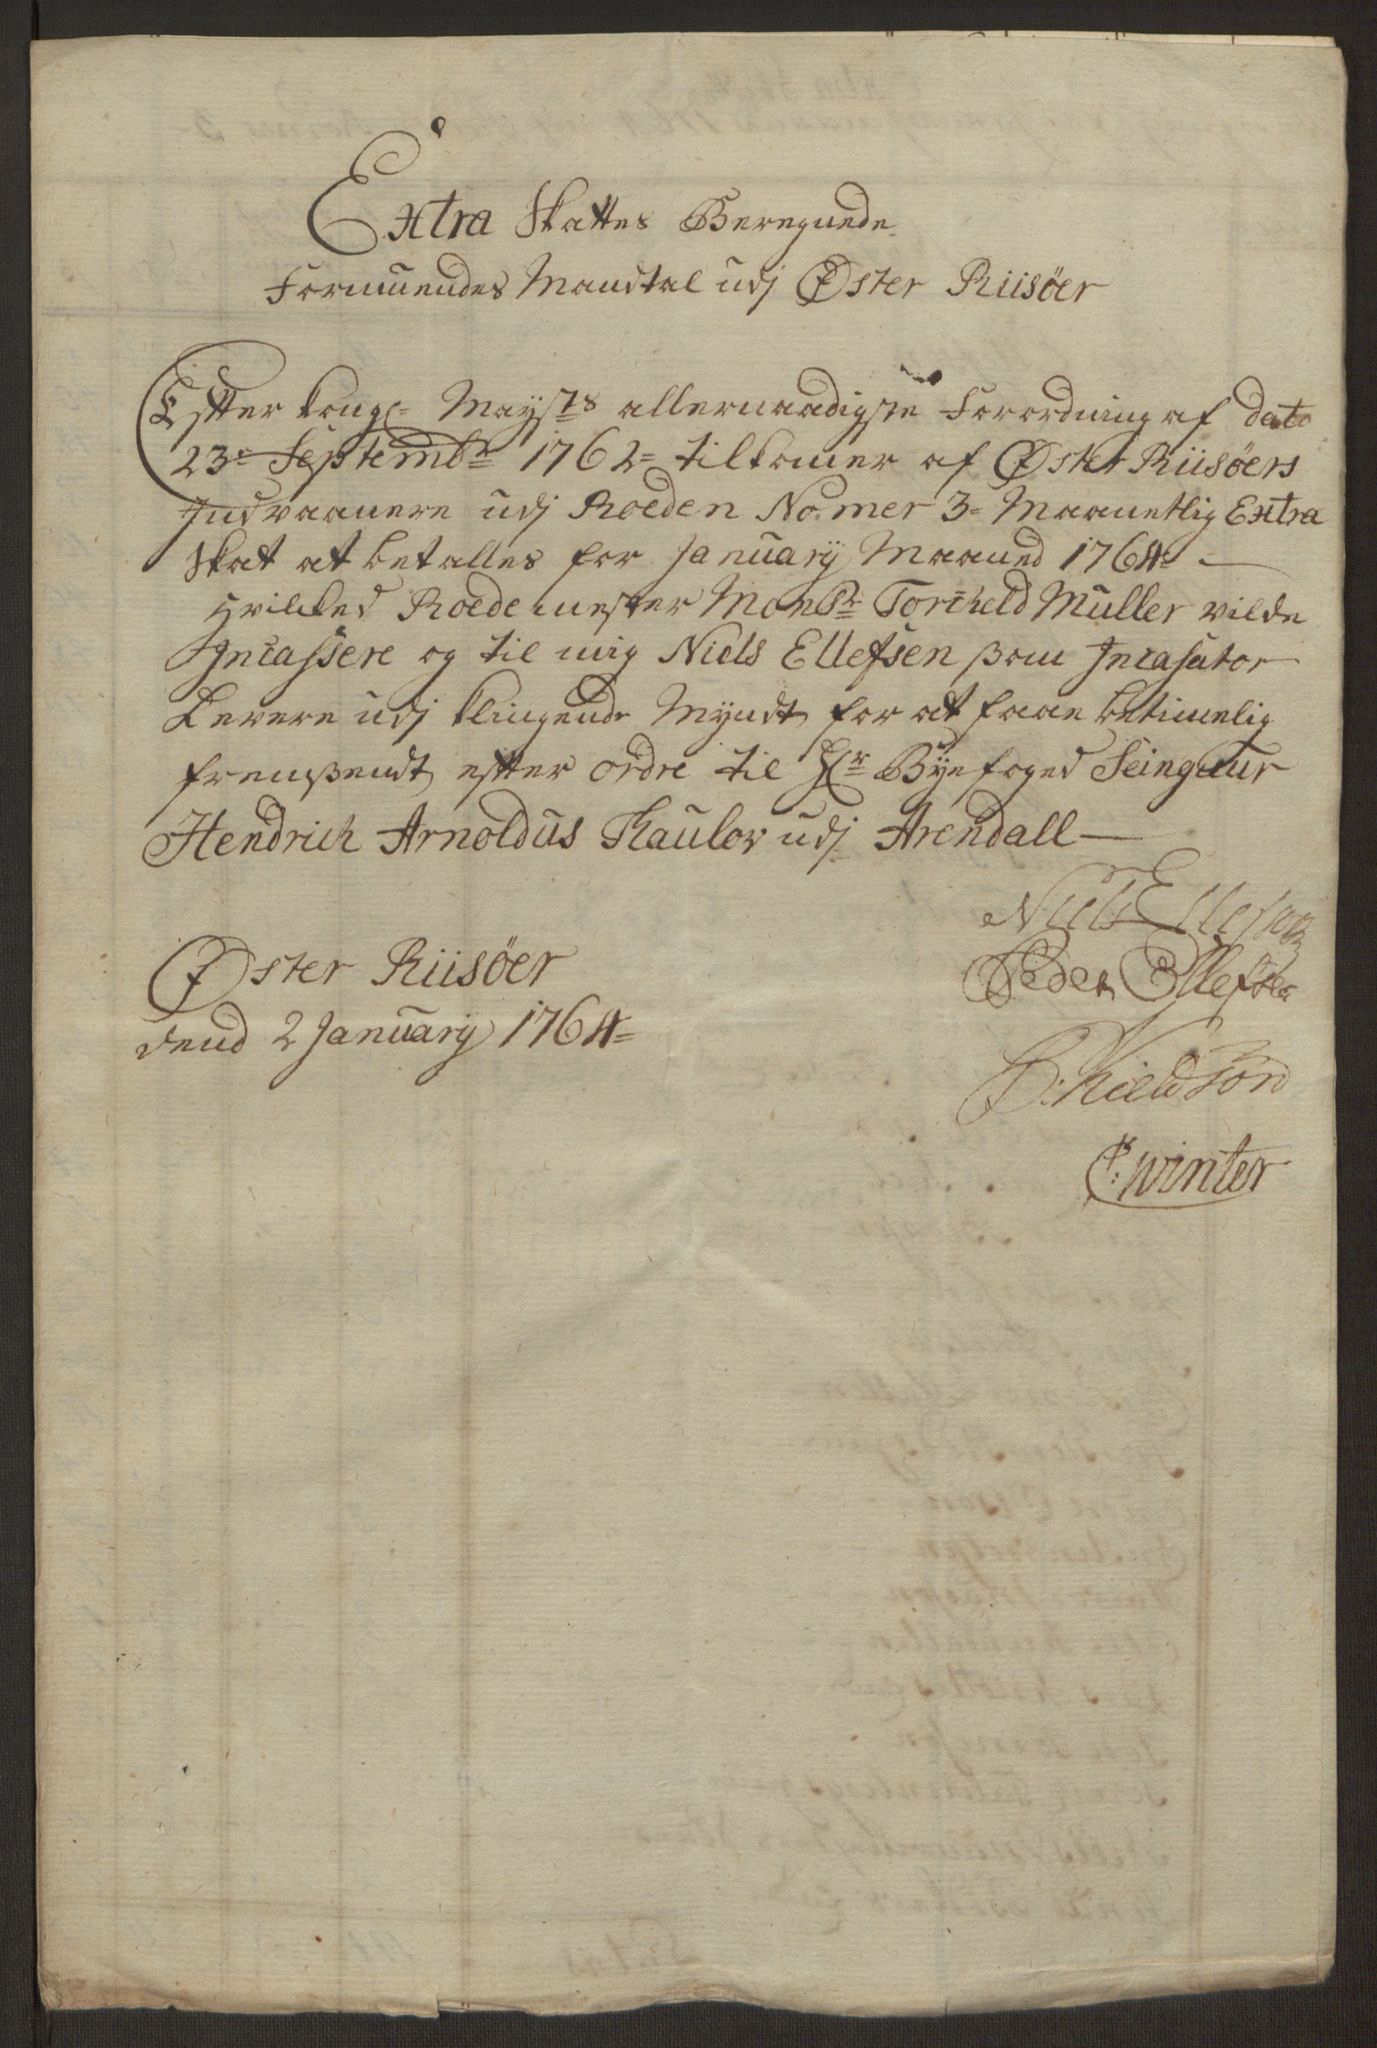 Extra Skattes Beregnede
Formuendes Mandtal udj Øster Riisöer
Effter Kongl= Maysts allernaadigste Forordning af dato
23e Septembr 1762= tilkomer af Øster Riisöers
Indvaanere udj Roeden No:mer 3= Maanetlig Extra
Skat at betalles for Januarij Maaned 1764=
hvilked Roedemester Monsr Torckeld Müller vilde
Incassere og til mig Niels Ellefsen som Incasator
Levere udj klingende Myndt for at faae betimelig
fremsendt effter ordre til Hr Byefoged Seingeur
Hendrich Arnoldus Thaulov udj Arendall
Niels Ellefsen
Øster Riisöer
Peder Ellefsen
dend 2 Januarij 1764=
Winter